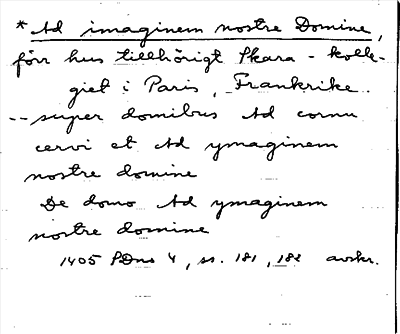 * Ad imaginem nostre Domine,
förr hus tillhörigt Skara-kolle-
giet i Paris, Frankrike.
-- super domibus Ad cornu
cervi et Ad ymaginem
nostre domine
De domo Ad ymaginem
nostre domine
1405 PDns 4, ss. 181, 182 avskr.